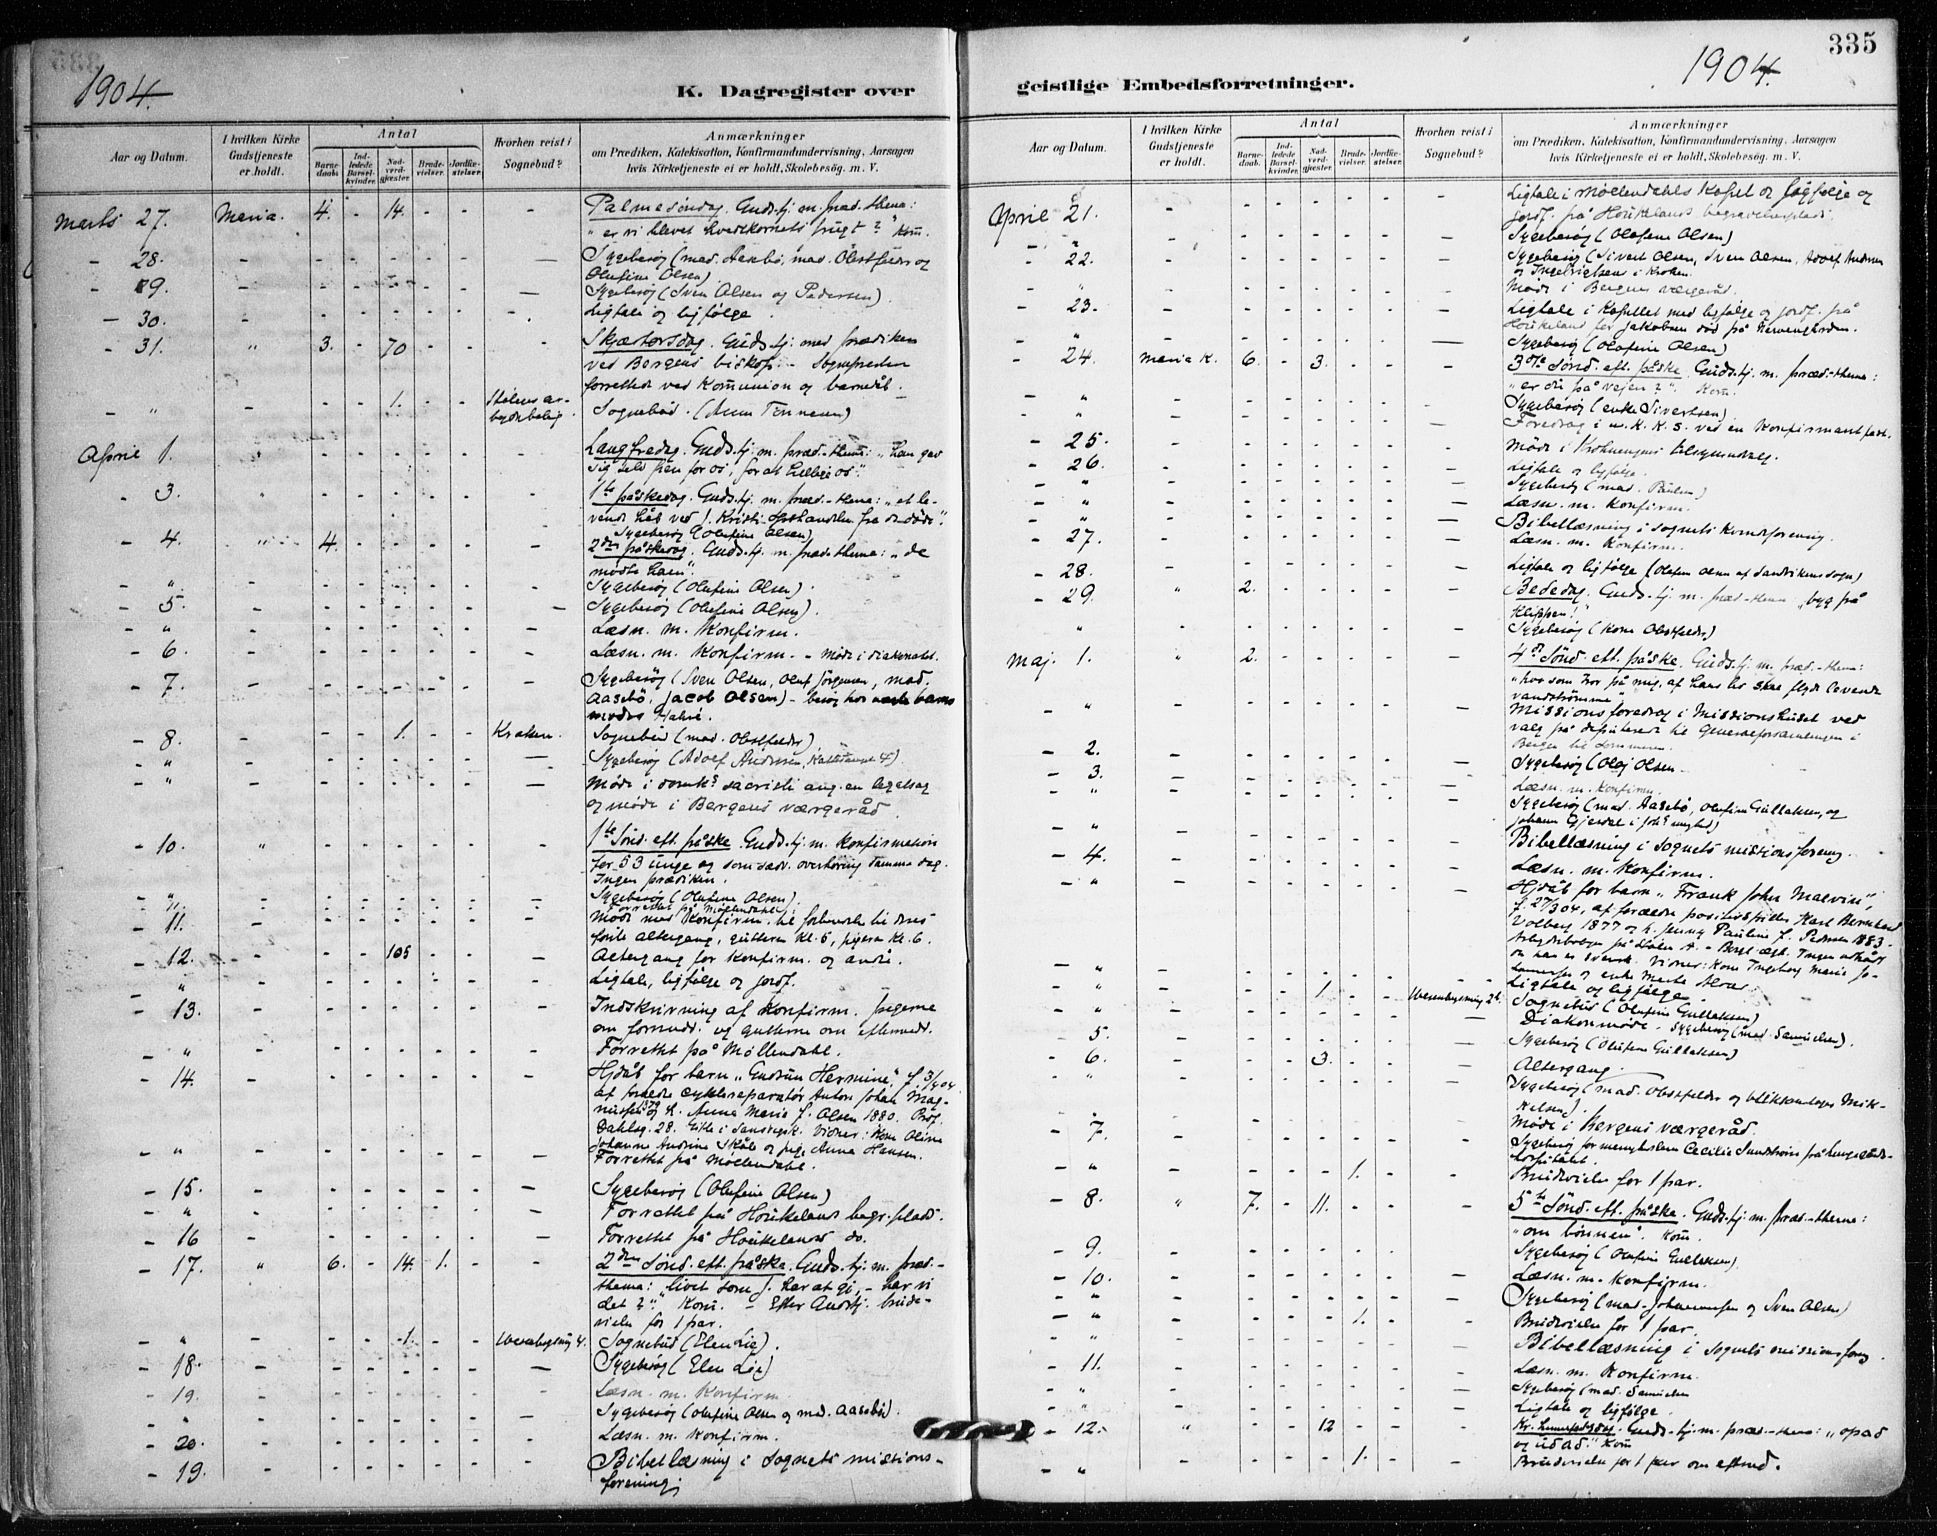 335
1904.
1904.
K. Dagregister over
geistlige Embedsforretninger.
Aar og Datum.
I hvilken Kirke
Gudstjeneste
er holdt.
Antal
Barne-
daab.
Ind-
ledede
Barsel-
kvinder.
Nad-
verd-
gjæster.
Brude-
vielser.
Jordfæ-
stelser.
Hvorhen reist i
Sognebud?
Anmærkninger
om Prædiken, Katekisation, Konfirmandundervisning, Aarsagen
hvis Kirketjeneste ei er holdt, Skolebesøg. m. V.
Marts 27. Maria. 4. - 14. - - - Palmesöndag. Guds.tj. m. præd. thema:
"er vi blevet hvedekornets frugt?" Kom.
- 28. Sygebesög (mad. Aasebö, mad. Obstfelder og
Olufine Olsen)
Sygebesög (Sven Olsen og Pedersen)
- 30. Ligtale og ligfölge
- 31. " 3. - 70 - - - Skjærtorsdag. Guds.tj. med prædiken
ved Bergens biskop. - Sognepresten
forrettede ved Kommunion og barnedåb.
- " 1. Sognebud.
April 1. Langfredag. Guds.tj. m. præd. - thema: "han gav
sig selv hen for os, for at hellige os".
- 3. 1ste påskedag. Guds.tj. m. præd. - thema: "et le-
vende håb ved J. Kristi opstandelse fra de döde".
Sygebesög (Olufine Olsen)
- 4. " 4. 2den påskedag. Guds.tj. m. præd. thema: "de
mödte ham".
- " Sygebesög (Olufine Olsen)
- 5. Sygebesög (Olufine Olsen).
- " Læsn. m. Konfirm.
- 6. Læsn. m. Konfirm. - Möde i diakonatet.
- 7. Sygebesög (Sven Olsen, Oluf Jörgensen, mad.
Aasebö, Jacob Olsen) - besög hos
- 8. 1. Kroken. Sognebud (mad. Obstfelder)
- " Sygebesög (Adolf Andersen,
- " Möde i domk.s sacristi ang. en legatsag
og möde i Bergens værgeråd.
- 10. " 1ste Sönd. eft. påske. Guds.tj. m. Konfirmation
for 53 unge og som sædv. overhöring samme dag.
Ingen prædiken.
- " Sygebesög (Olufine Olsen)
Forrettet på Möllendahl.
- 11. Möde med Konfirm. til forberedelse til deres
förste altergang, gutterne Kl. 5, pigerne Kl. 6.
- 12. 105 Altergang for Konfirm. og andre.
- " Ligtale, ligfölge og jordf.
- 13. Indskrivning af Konfirm. pigerne
om formidd. og gutterne om eftermidd.
- " Forrettet på Möllendahl.
- 14. Hjdåb for barn "Gudrun Hermine", f. 3/4 04
af forældre cykkelreparatör Anton Johan Mag-
nussen og H. Anna Marie f. Olsen 1880. Prof.
Dahlsg. 28. Vidner: Kone Oline
Johanne Andrine Skåle og pige Anna Hansen.
- " Forrettet på Möllendahl.
- 15. Sygebesög (Olufine Olsen)
- " Forrettet på Houkelands begr.plads.
- 16 Forrettet på Houkelands do.
- 17. " 6. - 14. 1. - - 2den Sönd. eft. påske. Guds.tj. m. præd. -
thema: "livet som J. har at gi, - har vi
det?". Kom. - Efter Gudstj. brude-
vielse for 1 par.
- " 1. Sognebud (Elen Lie).
- 18. Sygebesög (Elen Lie)
- 19. Læsn. m. Konfirm.
- " Sygebesög (Olufine Olsen og mad. Aasebö).
- 20. Læsn. m. Konfirm.
- 19. Bibellæsning i Sognets missions-
forening.
Aar og Datum.
I hvilken Kirke
Gudstjeneste
er holdt.
Antal
Barne-
daab.
Ind-
ledede
Barsel-
kvinder.
Nad-
verd-
gjæster.
Brude-
vielser.
Jordfæ-
stelser.
Hvorhen reist i
Sognebud?
Anmærkninger
om Prædiken, Katekisation, Konfirmandundervisning, Aarsagen
hvis Kirketjeneste ei er holdt, Skolebesøg. m. V.
April 21. Ligtale i Möllendahls Kapel og ligfölge og
jordf. på Houkelands begravelsesplads.
- " Sygebesög (Olufine Olsen)
- 22. Sygebesög (Sivert Olsen, Sven Olsen, Adolf Andersen
og Ingebrigtsen i Kroken.
- " Möde i Bergens værgeråd.
- 23. Ligtale i Kapellet med ligfölge og jordf. på
Houkeland for Jakobsen död på
- " Sygebesög (Olufine Olsen)
- 24. Maria K. 6. - 3. - - - 3die Sönd. eft. påske. Guds.tj. m. præd. - thema:
"er du på vejen?". Kom.
- " Sygebesög (enke Sivertsen)
- " Foredrag i u. K. K. S. ved en Konfirmantfest.
- 25. Möde i Krohnengens tilsynsudvalg.
- 26. Ligtale og ligfölge.
- " Sygebesög (mad. Paulsen)
- " Læsn. m. Konfirm.
- " Bibellæsning i Sognets Kvindeforening.
- 27. Læsn. m. Konfirm.
- 28. Ligtale og ligfölge
- 29. " 2. Bededag. Guds.tj. m. præd. - thema "byg på
klippen!"
- " Sygebesög (Kone Obstfelder)
Maj. 1. " 2. 4de Sönd. eft. påske. Guds.tj. m. præd. - thema:
"hvo som tror på mig, af hans liv skal flyde levende
vandströmme"
- " Missionsforedrag i Missionshuset ved
valg på deputerede til Generalforsamlingen i
Bergen til sommeren.
- 2. Sygebesög (Olaj Olsen
- 3. Læsn. m. Konfirm.
- " Sygebesög (mad. Aasebö, Olufine Gullaksen, og
Johann Gjerdal
- " Bibellæsning i Sognets missionsforening.
- 4. Læsn. m. Konfirm.
- " Hjdåb for barn "Frank John Malvin",
f. 27/3 04, af forældre positivspiller Karl Bernhard
Volberg 1877 og H. Jenny Pauline f. Pedersen 1883.
Vidner: Kone Ingeborg Marie Jo-
hannesen og enke Marthe
- " Ligtale og ligfölge
- " 1. Sognebud (Olufine Gullaksen)
Diakonmöde. Sygebesög (mad. Samuelsen).
- 5. Sygebesög (Olufine Gullaksen)
- 6. 3. Altergang.
- " Sygebesög (mad. Obstfelder og blikkenslager Mik-
kelsen).
- " Möde i Bergens værgeråd.
- 7. Sygebesög for menighedem Cecilie Sundström på lungegårds-
hospitalet.
- " 1. Brudevielse for 1 par.
- 8. " 7. - 11. - - - 5te Sönd. eft. påske. Guds.tj. m. præd. - thema:
"om bönnen". Kom.
- 9. Sygebesög (Olufine Gullaksen)
- 10. Læsn. m. Konfirm.
- " Sygebesög (mad. Johannessen og Sven Olsen)
- " 1. Brudevielse for 1 par.
- " Bibellæsning i Sognets missionsforeng.
- 11. Læsn. m. Konfirm.
- " Sygebesög (mad. Samuelsen
Ligtale og ligfölge.
- 12. " 12 Kr. himmelfartsdag. Guds.tj. m. præd. - thema: "opad
og udad." Kom
- " 1. Brudevielse for 1 par om efterm.